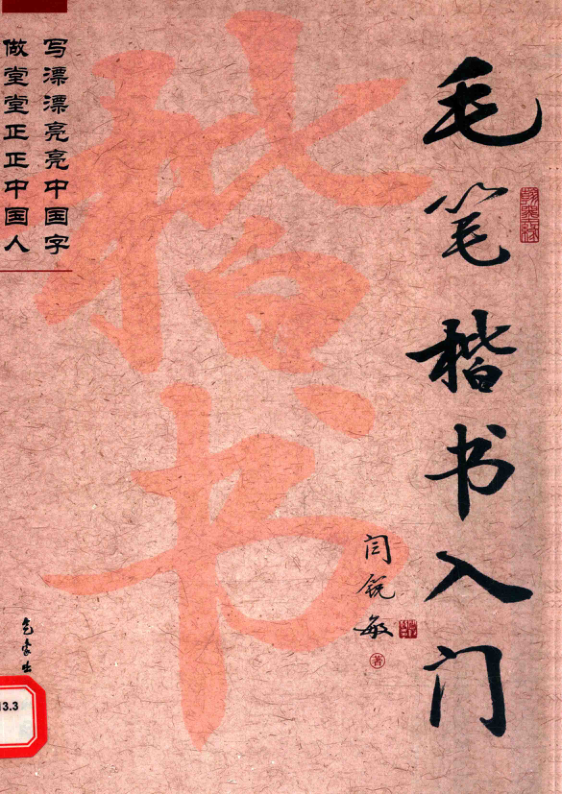 毛笔楷书入门
闫锐敏
著
楷书
写漂漂亮亮中国字
做堂堂正正中国人
气象出
13.3